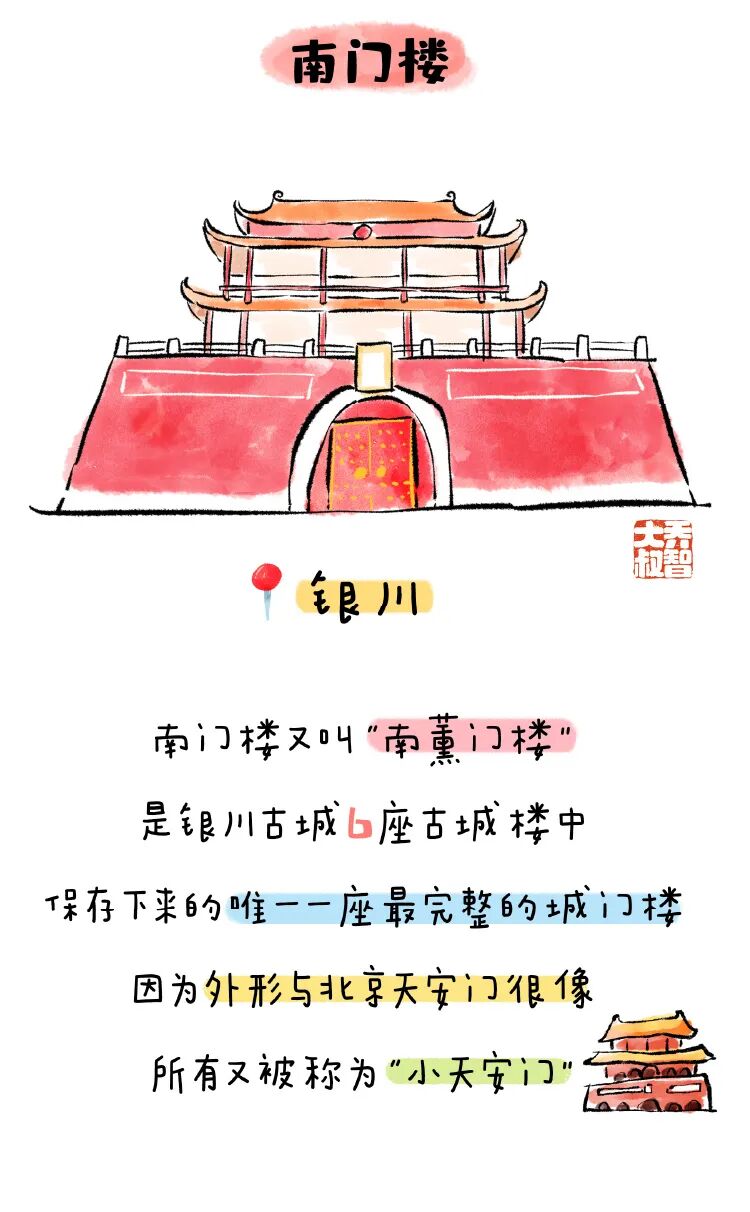 南门楼
大叔
天智
银川
南门楼又叫“南薰门楼”
是银川古城6座古城楼中
保存下来的唯一一座最完整的城门楼
因为外形与北京天安门很像
所有又被称为“小天安门”